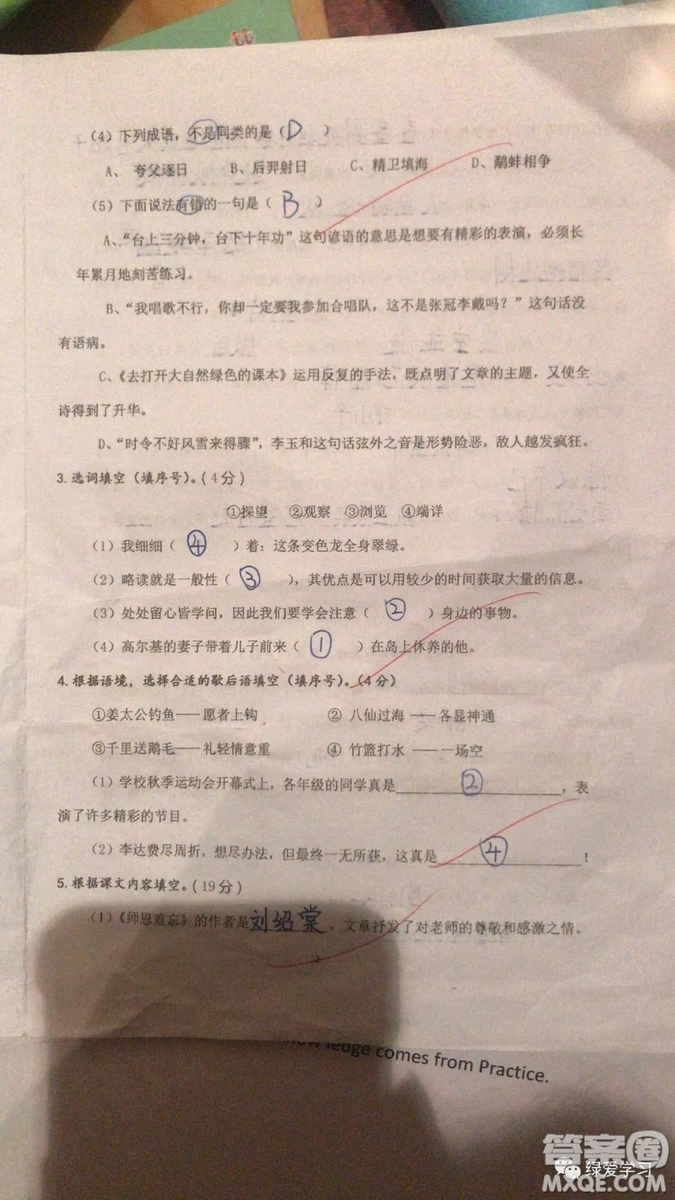 (4)下列成语，不是同类的是（ D ）
A、 夸父逐日 B、后羿射日 C、精卫填海 D、鹬蚌相争
(5)下面说法有错的一句是（ B ）
A、“台上三分钟，台下十年功”这句谚语的意思是想要有精彩的表演，必须长
年累月地刻苦练习。
B、“我唱歌不行，你却一定要我参加合唱队，这不是张冠李戴吗？”这句话没
有语病。
C、《去打开大自然绿色的课本》运用反复的手法，既点明了文章的主题，又使全
诗得到了升华。
D、“时令不好风雪来得骤”，李玉和这句话弦外之音是形势险恶，敌人越发疯狂。
3.选词填空（填序号）。(4分)
①探望 ②观察 ③浏览 ④端详
(1)我细细（ ④ ）着：这条变色龙全身翠绿。
(2)略读就是一般性（ ③ ），其优点是可以用较少的时间获取大量的信息。
(3)处处留心皆学问，因此我们要学会注意（ ② ）身边的事物。
(4)高尔基的妻子带着儿子前来（ ① ）在岛上休养的他。
4.根据语境，选择合适的歇后语填空（填序号）。(4分)
①姜太公钓鱼——愿者上钩 ② 八仙过海 ——各显神通
③千里送鹅毛——礼轻情意重 ④ 竹篮打水 ——一场空
(1)学校秋季运动会开幕式上，各年级的同学真是 ② ，表
演了许多精彩的节目。
(2)李达费尽周折，想尽办法，但最终一无所获，这真是 ④ ！
5.根据课文内容填空。(19分)
(1)《师恩难忘》的作者是刘绍棠，文章抒发了对老师的尊敬和感激之情。
2
ledge comes from Practice.
答案圈
绿爱学习
MXQE.COM